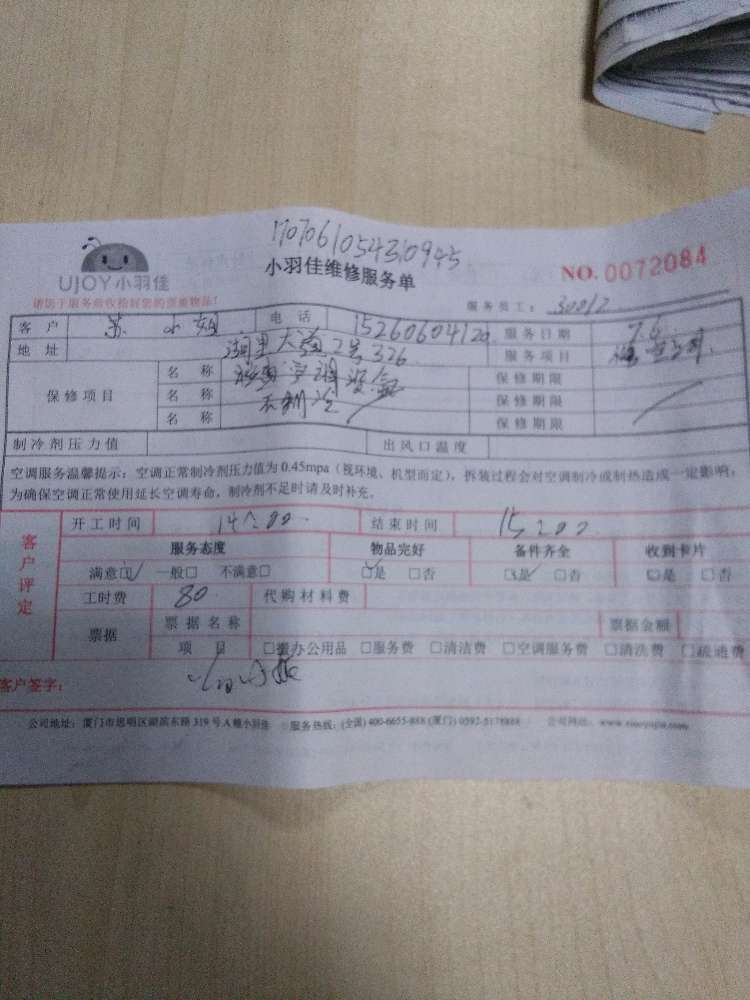 1707061054310945
UJOY小羽佳
小羽佳维修服务单
NO. 0072084
请您于服务前收拾好您的贵重物品!
服务员工: 30012
客户 苏小姐 电话 15260604120 服务日期 7.6
地址 2号326 服务项目
保修项目 名称 保修期限
名称 不制冷 保修期限
名称 保修期限
制冷剂压力值 出风口温度
空调服务温馨提示:空调正常制冷剂压力值为0.45mpa(视环境、机型而定),拆装过程会对空调制冷或制热造成一定影响,
为确保空调正常使用延长空调寿命,制冷剂不足时请及时补充。
客户评定
开工时间 14:00 结束时间 15:00
服务态度 物品完好 备件齐全 收到卡片
满意☑ 一般□ 不满意□ ☑是 □否 ☑是 □否 □是 □否
工时费 80 代购材料费
票据 票据名称 票据金额
项目 □搬办公用品 □服务费 □清洁费 □空调服务费 □清洗费 □疏通费
客户签字:
公司地址:厦门市思明区湖滨东路319号A幢小羽佳 服务热线:(全国)400-6655-888 (厦门)0592-5178888 公司网站:www.xiaoyujia.com